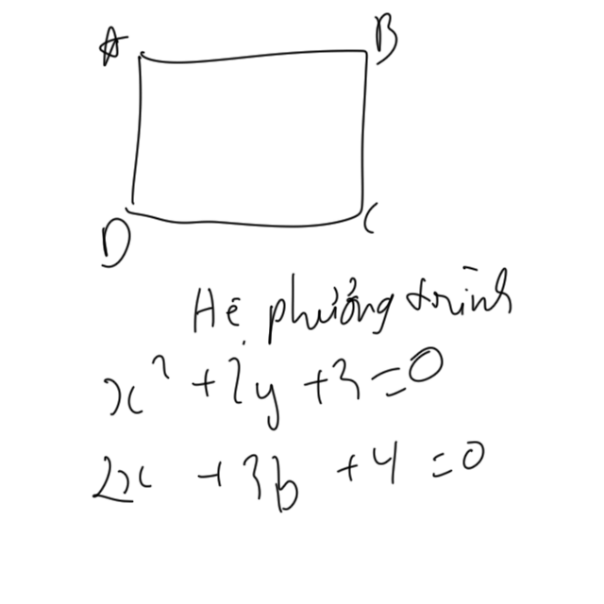 A B
D C
Hệ phưởng trình
x² + 2y + 3 = 0
2x + 3b + 4 = 0